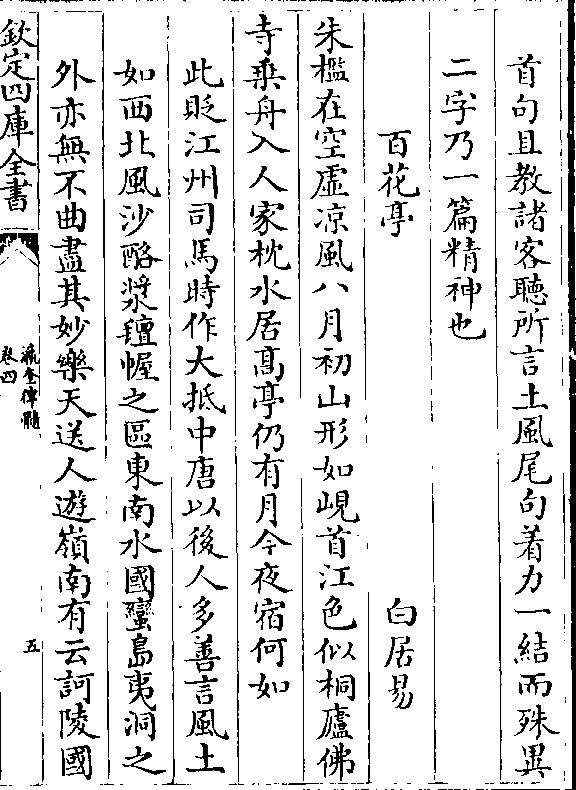 首句且教諸客聽所言土風尾句着力一結而殊異
二字乃一篇精神也
百花亭 白居易
朱檻在空虛凉風八月初山形如峴首江色似桐廬佛
寺乗舟入人家枕水居髙亭仍有月今夜宿何如
此貶江州司馬時作大抵中唐以後人多善言風土
如西北風沙酪漿氊幄之區東南水國蠻島夷洞之
外亦無不曲盡其妙樂天送人遊嶺南有云訶陵國
欽定四庫全書
瀛奎律髓
卷四
五